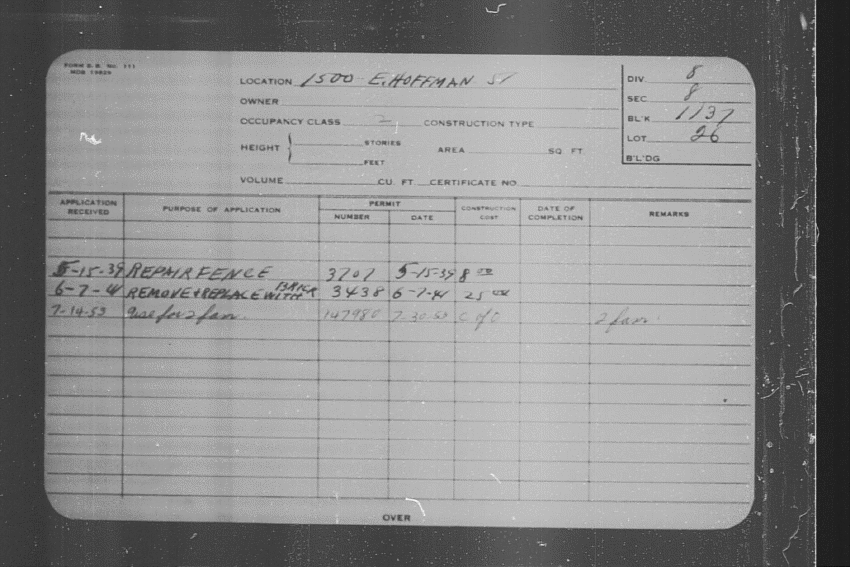 FORM Z. B. No. 111
MDB 19829
LOCATION 1500 E. HOFFMAN ST
OWNER
OCCUPANCY CLASS 2 CONSTRUCTION TYPE
HEIGHT { STORIES
FEET
AREA SQ. FT.
VOLUME CU. FT. CERTIFICATE NO.
DIV. 8
SEC 8
BL'K 1137
LOT 26
B'L'DG
APPLICATION RECEIVED PURPOSE OF APPLICATION PERMIT NUMBER DATE CONSTRUCTION COST DATE OF COMPLETION REMARKS
5-15-39 REPAIR FENCE 3707 5-15-39 8 00
6-7-41 REMOVE + REPLACE WITH BRICK 3438 6-7-41 25 00
7-14-53 Use for 2 fam. 147980 7-30-53 C of O 2 fam.
OVER